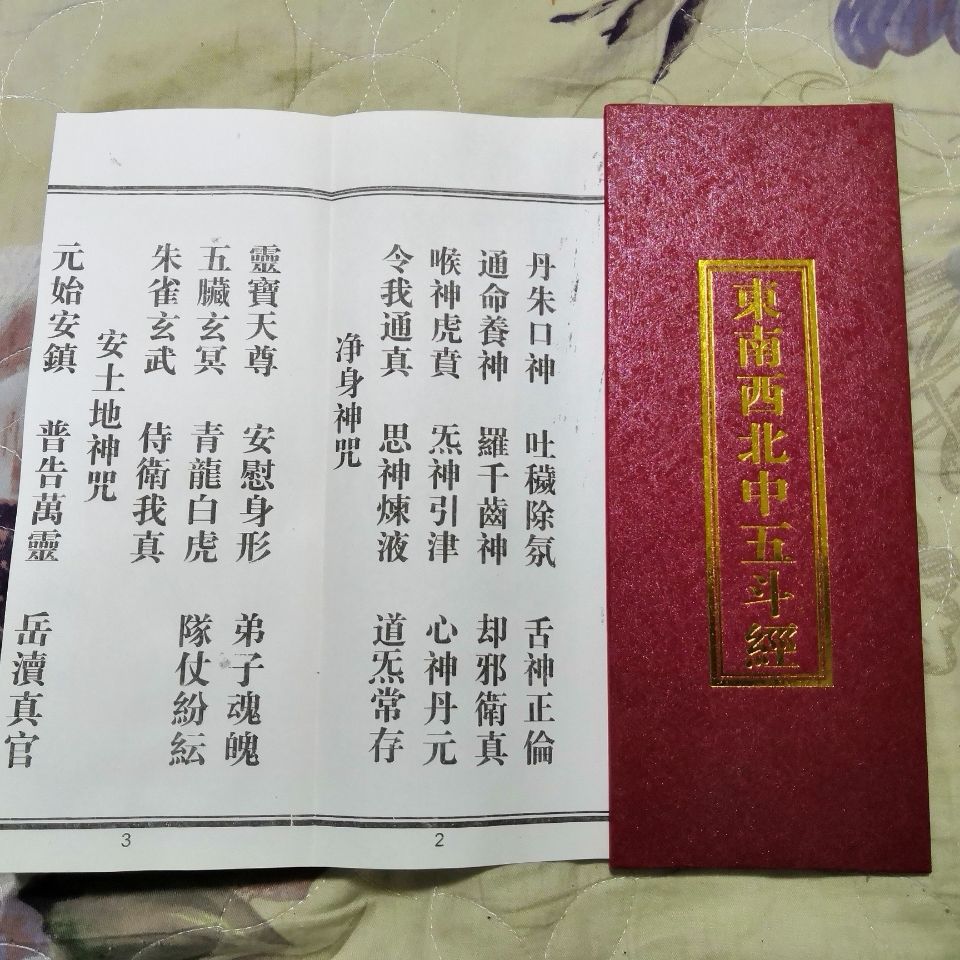 東南西北中五斗經
丹朱口神 吐穢除氛 舌神正倫
通命養神 羅千齒神 却邪衛真
喉神虎賁 炁神引津 心神丹元
令我通真 思神煉液 道炁常存
净身神咒
靈寶天尊 安慰身形 弟子魂魄
五臟玄冥 青龍白虎 隊仗紛紜
朱雀玄武 侍衛我真
安土地神咒
元始安鎮 普告萬靈 岳瀆真官
2
3